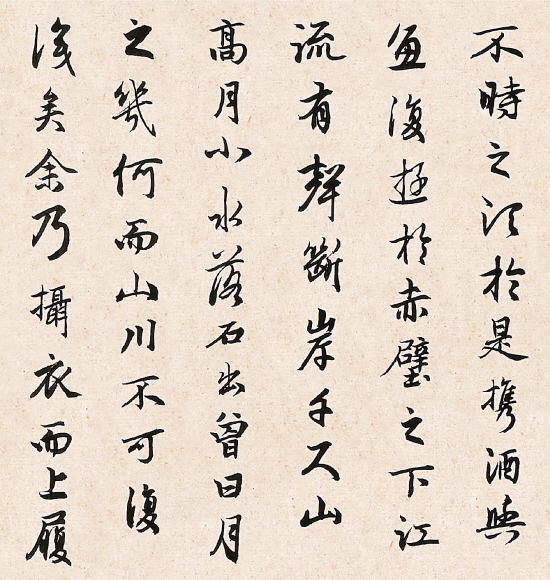 不時之須於是攜酒與
魚復遊於赤壁之下江
流有聲斷岸千尺山
高月小水落石出曾日月
之幾何而山川不可復
識矣余乃攝衣而上履